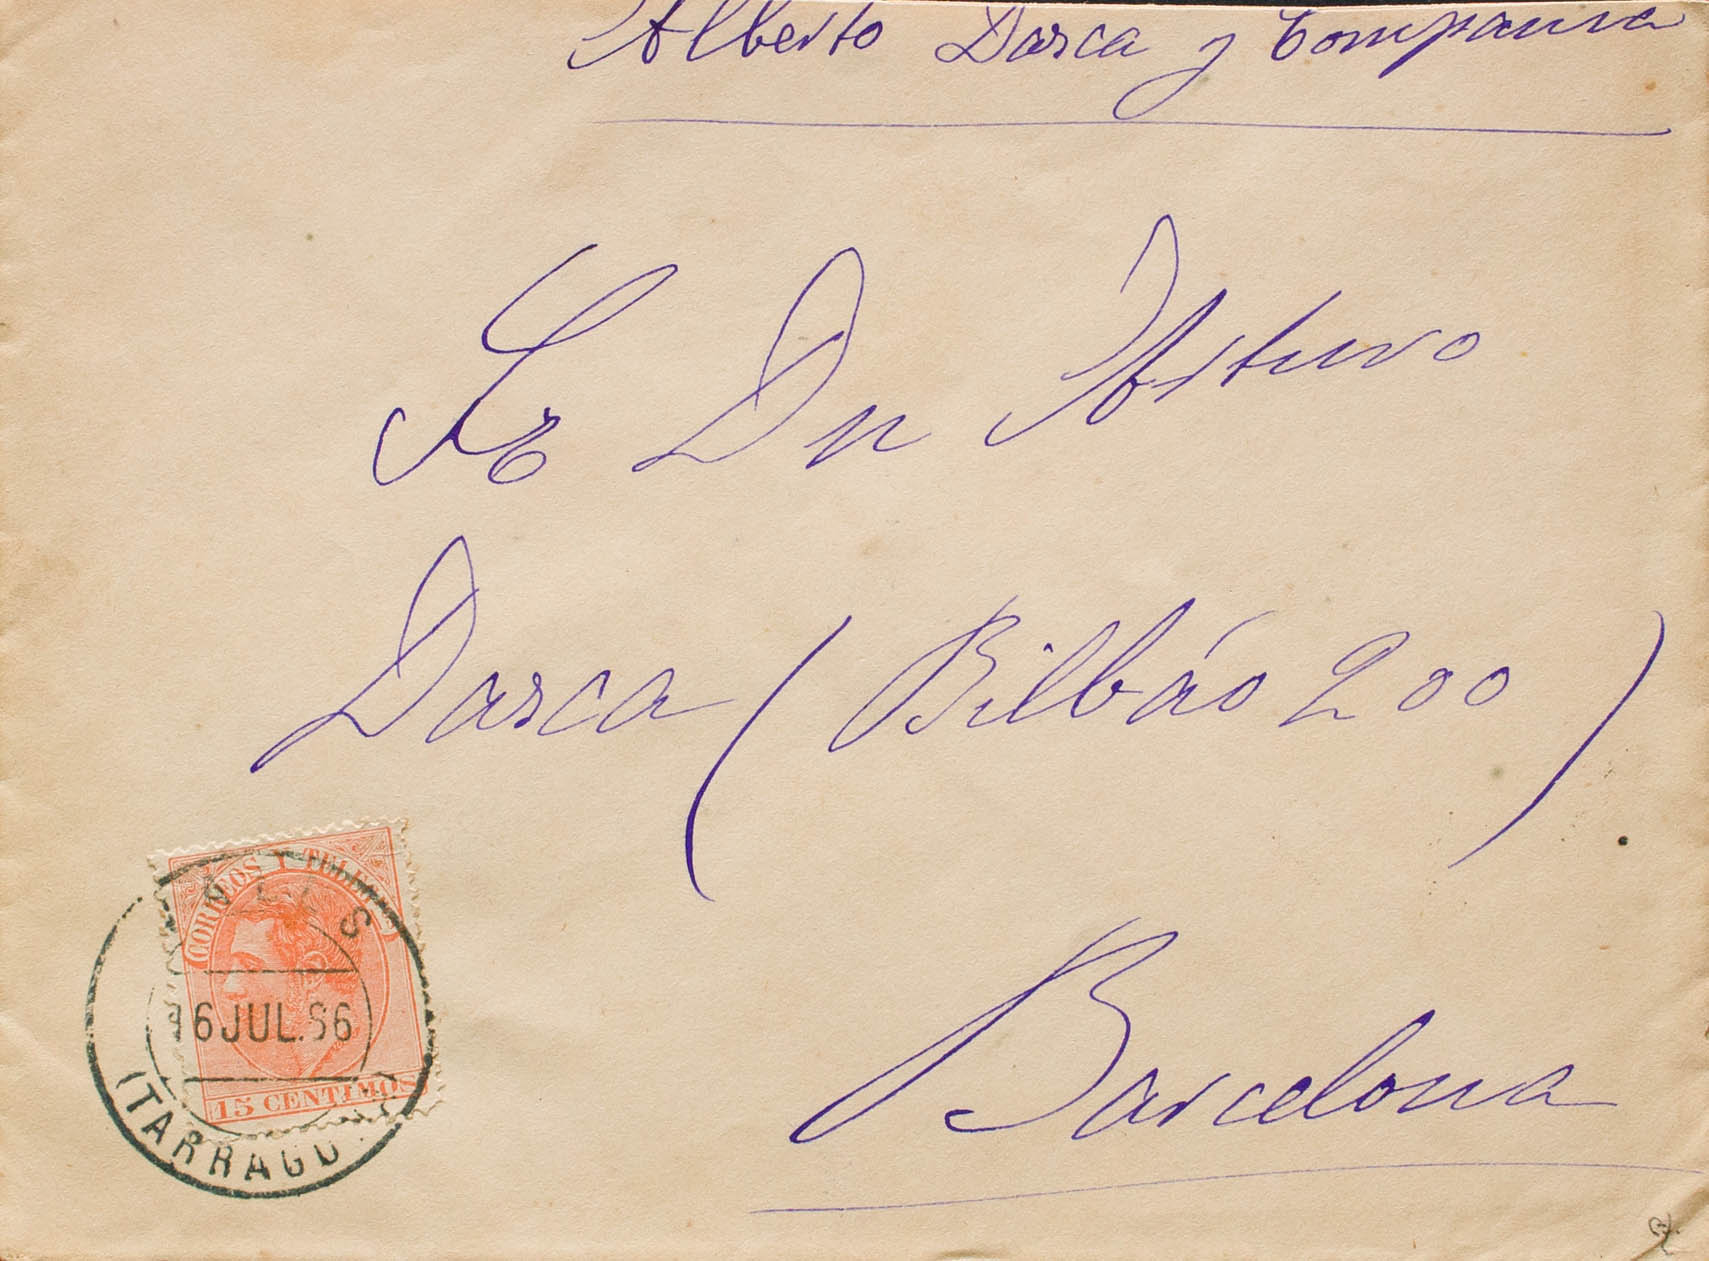 Alberto Darca y Compania
Sr Dn Arturo
Darca (Bilbáo 200)
Barcelona
CORREOS Y TELEG
16 JUL. 86
15 CENTIMOS
(TARRAGO